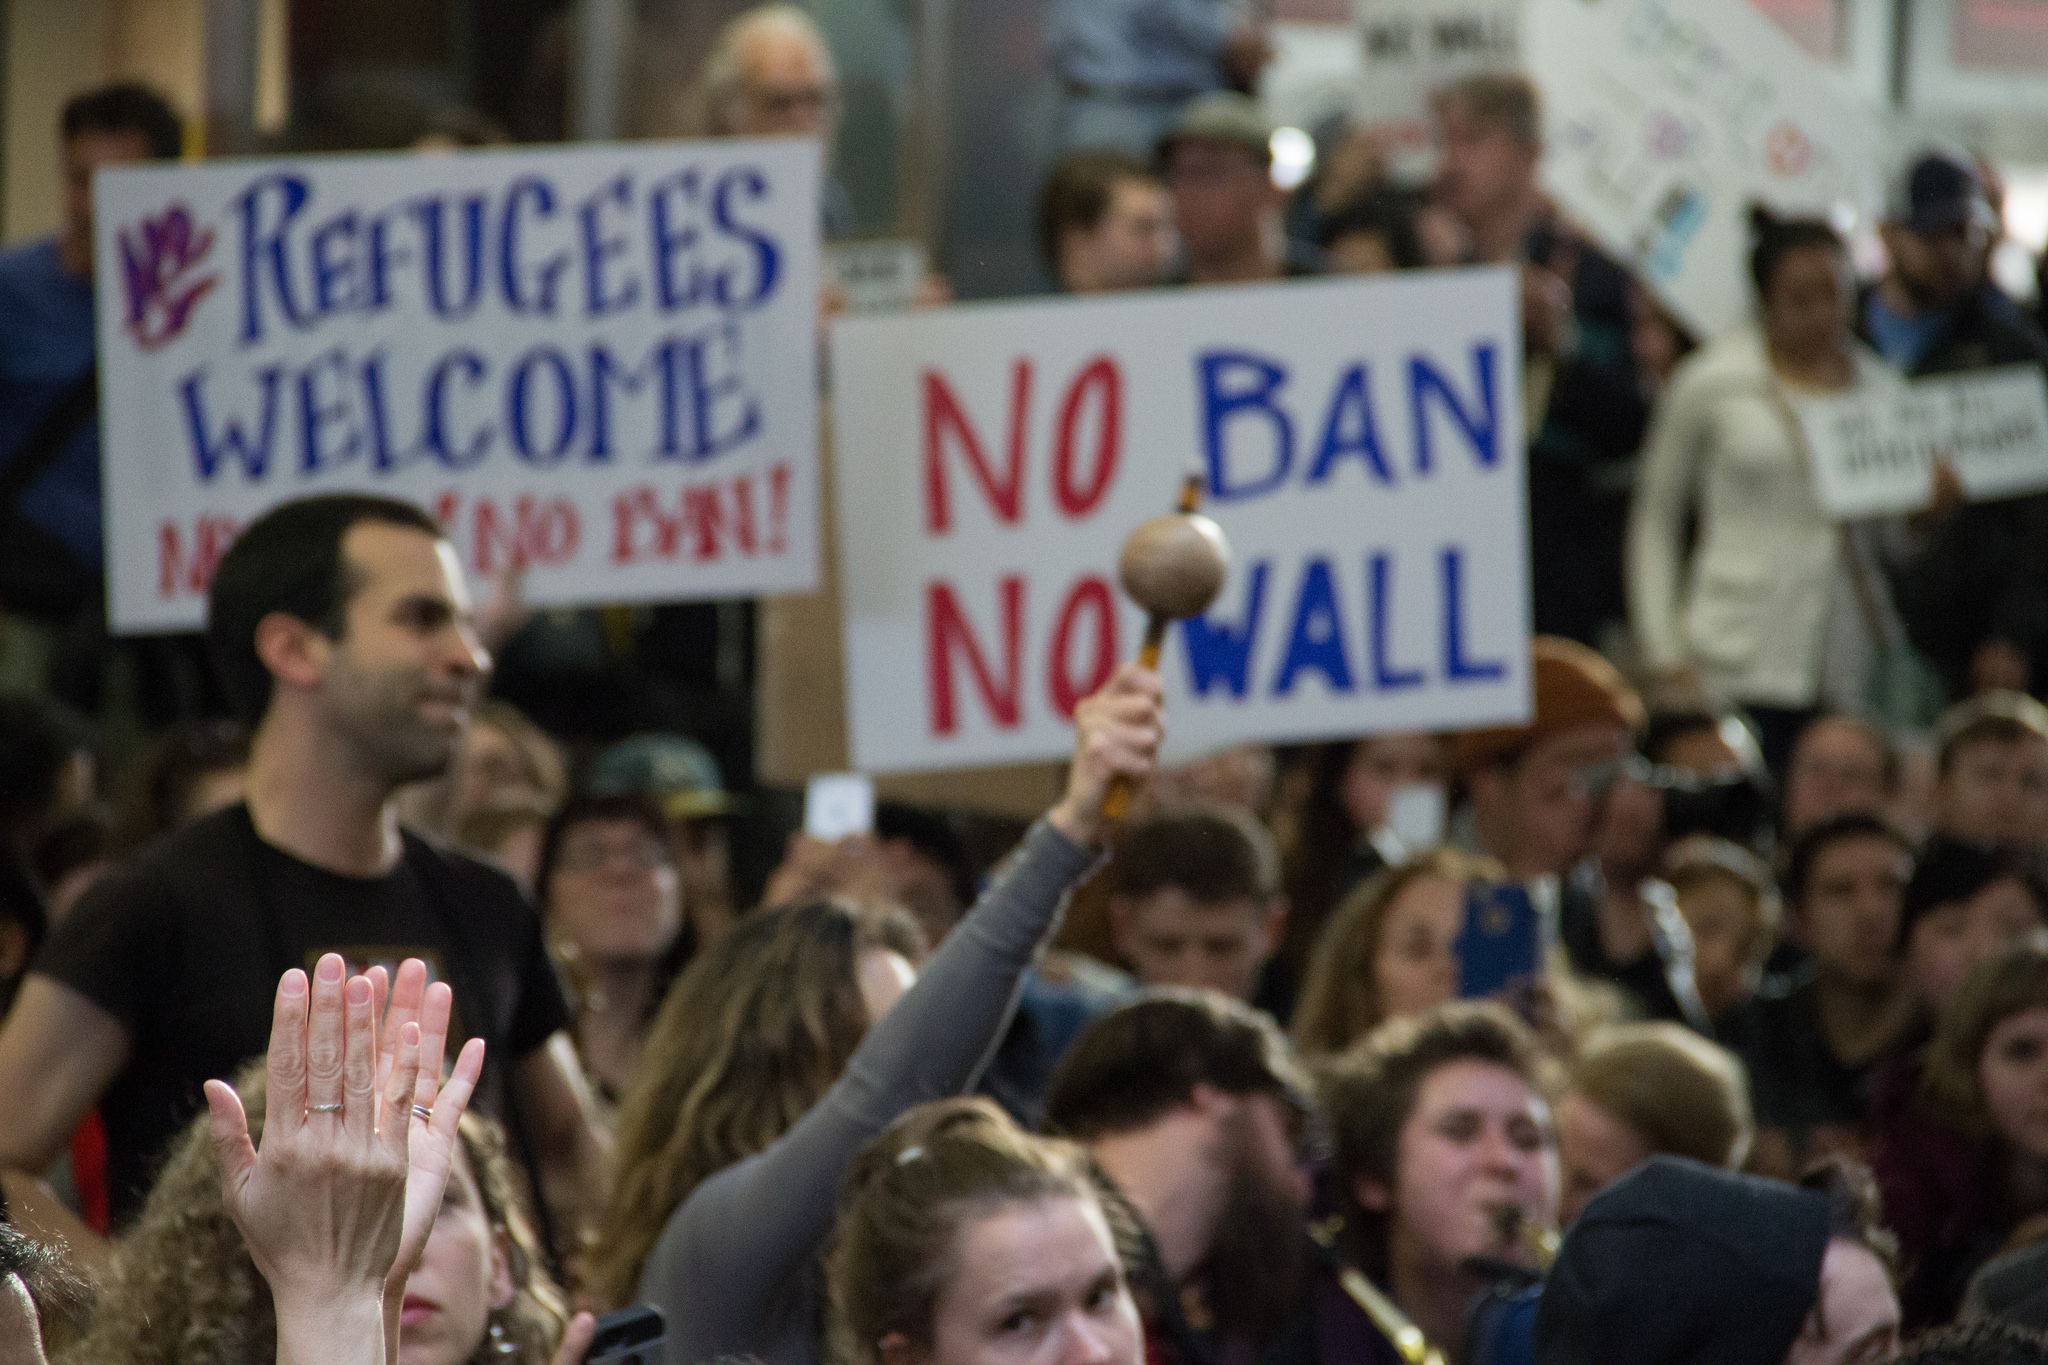 REFUGEES
WELCOME
NO BAN!
NO BAN
NO WALL